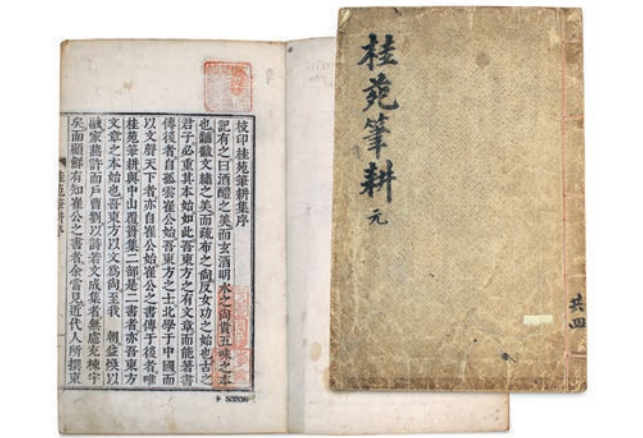 校印桂苑筆耕集序
記有之曰酒醴之美而玄酒明水之尙貴五味之本
也黼黻文繡之美而疏布之尙反女功之始也古之
君子必重其本始如此吾東方之有文章而能著書
傳後者自孤雲崔公始吾東方之士北學于中國而
以文聲天下者亦自崔公始崔公之書傳于後者唯
桂苑筆耕與中山覆簣集二部是二書者亦吾東方
文章之本始也吾東方以文爲尙至我 朝益煥以
融家燕許而戶曹劉以詩若文成集者無慮充棟宇
矣而顧鮮有知崔公之書者余嘗見近代人所撰東
桂苑筆耕序
53936
桂苑筆耕
元
共四